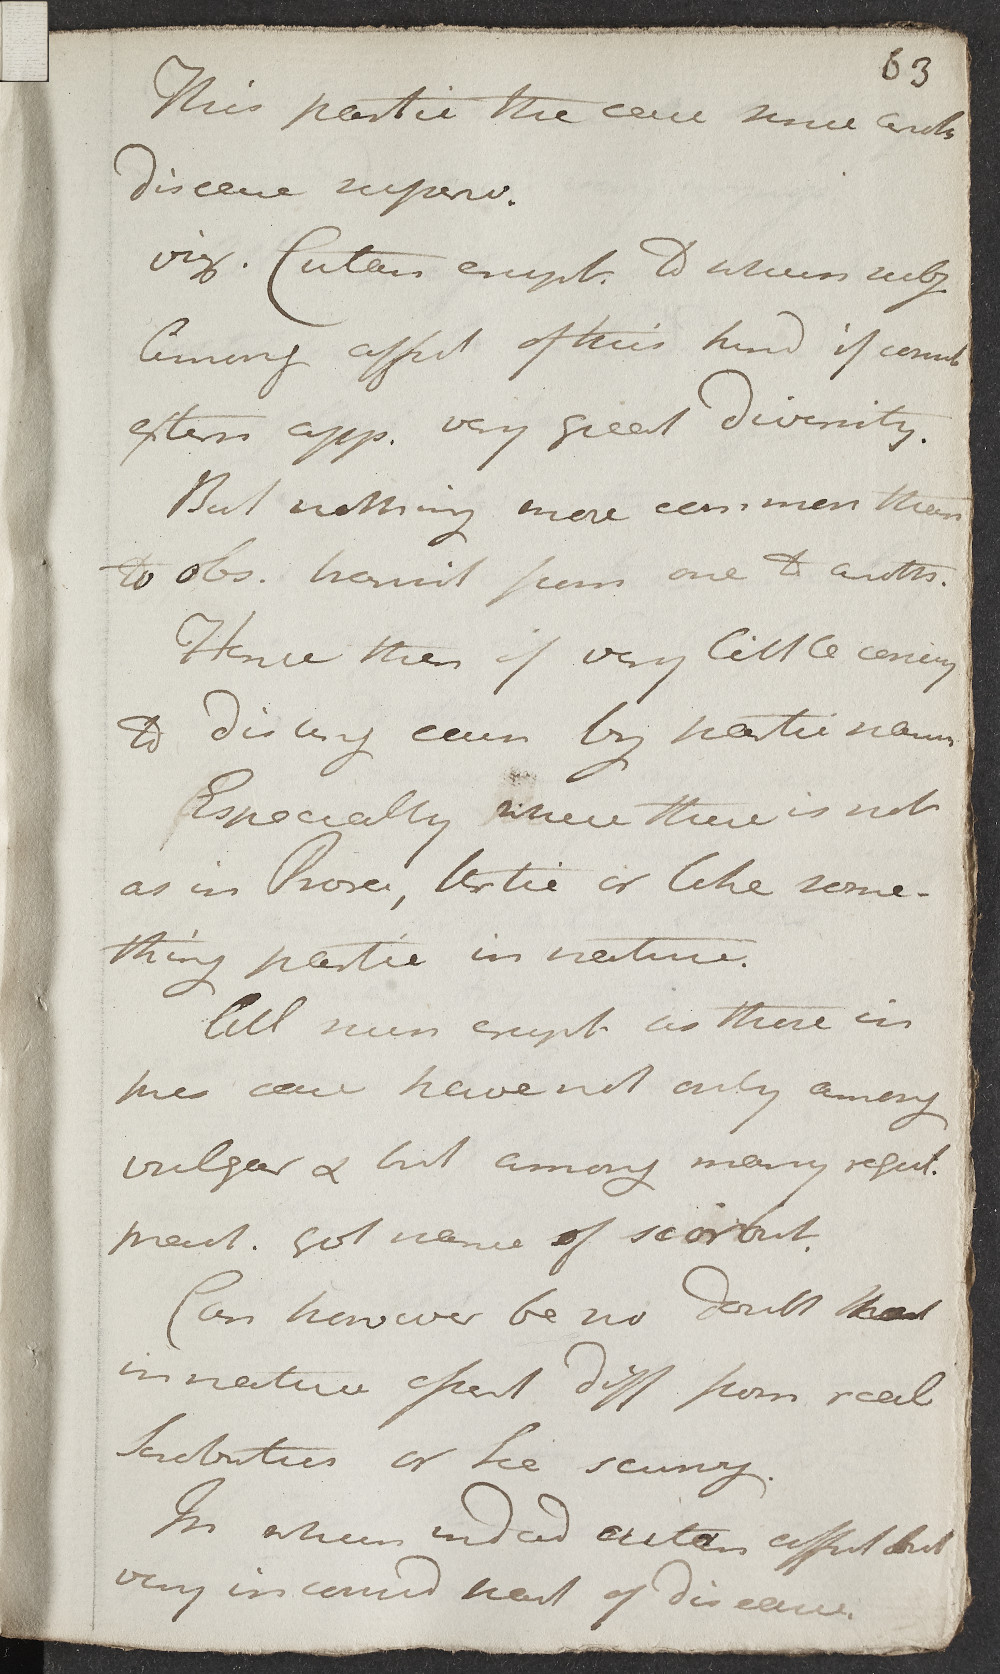 63
This partic the case since ands
disease superv.
viz. Cutan erupt. to whem subj
Among affect of this kind if consid
extern app. very great diversity.
But nothing more common than
to obs. transit from one to anoth.
Hence then if very little conseq
to disting cuan by partic names
Especially where there is not
as in Psora, Urtic or like some-
thing partic in nature.
All such erupt. as those in
pres case have not only among
vulgar & but among many regul.
pract. got name of scorbut.
Can however be no doubt that
in nature apart diff from real
Scorbuticus or Sea scurvy.
In when indeed cutan affect but
very in consid part of disease.